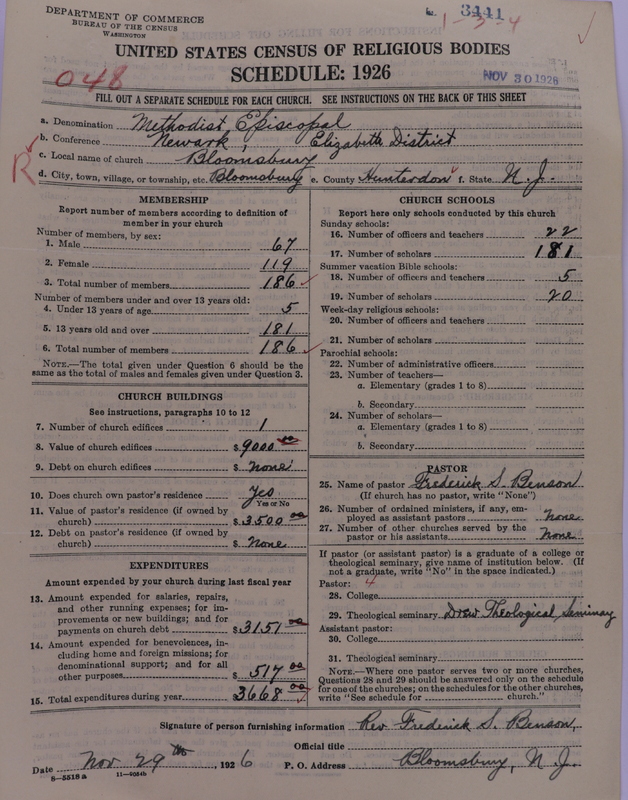 DEPARTMENT OF COMMERCE
BUREAU OF THE CENSUS
WASHINGTON
3441
1-3-4
UNITED STATES CENSUS OF RELIGIOUS BODIES
SCHEDULE: 1926
048
NOV 30 1926
FILL OUT A SEPARATE SCHEDULE FOR EACH CHURCH. SEE INSTRUCTIONS ON THE BACK OF THIS SHEET
a. Denomination Methodist Episcopal
b. Conference Newark, Elizabeth District
c. Local name of church Bloomsbury
R
d. City, town, village, or township, etc. Bloomsbury e. County Hunterdon f. State N. J.
MEMBERSHIP
Report number of members according to definition of
member in your church
Number of members, by sex:
1. Male 67
2. Female 119
3. Total number of members 186
Number of members under and over 13 years old:
4. Under 13 years of age 5
5. 13 years old and over 181
6. Total number of members 186
NOTE.—The total given under Question 6 should be
same as the total of males and females given under Question 3.
CHURCH BUILDINGS
See instructions, paragraphs 10 to 12
7. Number of church edifices 1
8. Value of church edifices $ 9000 00
9. Debt on church edifices $ None
10. Does church own pastor's residence Yes
Yes or No
11. Value of pastor's residence (if owned by
church) $ 3500 00
12. Debt on pastor's residence (if owned by
church) $ None
EXPENDITURES
Amount expended by your church during last fiscal year
13. Amount expended for salaries, repairs,
and other running expenses; for im-
provements or new buildings; and for
payments on church debt $ 3151 00
14. Amount expended for benevolences, in-
cluding home and foreign missions; for
denominational support; and for all
other purposes $ 517 00
15. Total expenditures during year $ 3668 00
CHURCH SCHOOLS
Report here only schools conducted by this church
Sunday schools:
16. Number of officers and teachers 22
17. Number of scholars 181
Summer vacation Bible schools:
18. Number of officers and teachers 5
19. Number of scholars 20
Week-day religious schools:
20. Number of officers and teachers
21. Number of scholars
Parochial schools:
22. Number of administrative officers
23. Number of teachers—
a. Elementary (grades 1 to 8)
b. Secondary
24. Number of scholars—
a. Elementary (grades 1 to 8)
b. Secondary
PASTOR
25. Name of pastor Frederick S. Benson
(If church has no pastor, write "None")
26. Number of ordained ministers, if any, em-
ployed as assistant pastors None
27. Number of other churches served by the
pastor or his assistants None
If pastor (or assistant pastor) is a graduate of a college or
theological seminary, give name of institution below. (If
not a graduate, write "No" in the space indicated.)
Pastor: 4
28. College
29. Theological seminary Drew Theological Seminary
Assistant pastor:
30. College
31. Theological seminary
NOTE.—Where one pastor serves two or more churches,
Questions 28 and 29 should be answered only on the schedule
for one of the churches; on the schedules for the other churches,
write "See schedule for ____ church."
Signature of person furnishing information Rev. Frederick S. Benson,
Official title
Date Nov 29th, 1926 P. O. Address Bloomsbury, N. J.
8-5518a 11-9034b